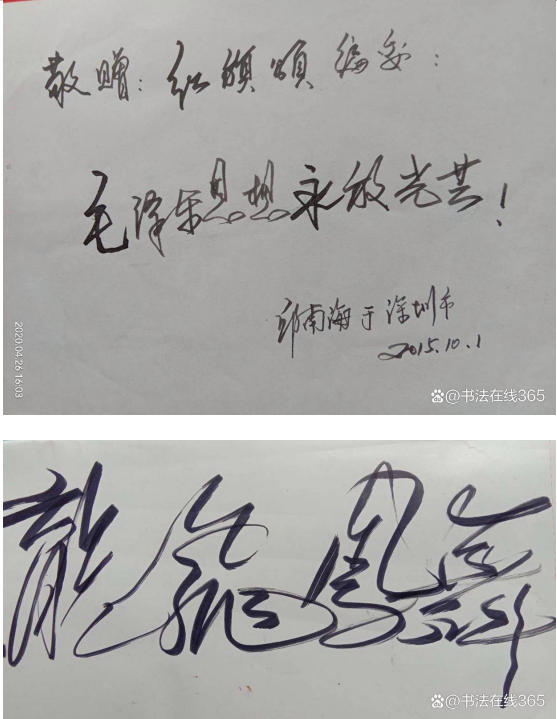 敬赠：红旗颂编委：
毛泽东思想永放光芒！
南海于深圳市
2015.10.1
2020.04.26 16:03
@书法在线365
龍飞鳳舞
@书法在线365